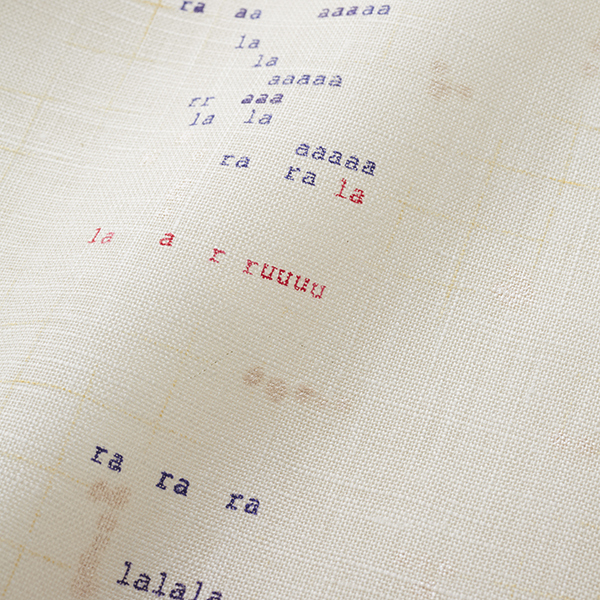 ra aa aaaaa
la
la
aaaaa
rr aaa
la la
aaaaa
ra ra la
la a r ruuuu
ra ra ra
lalala